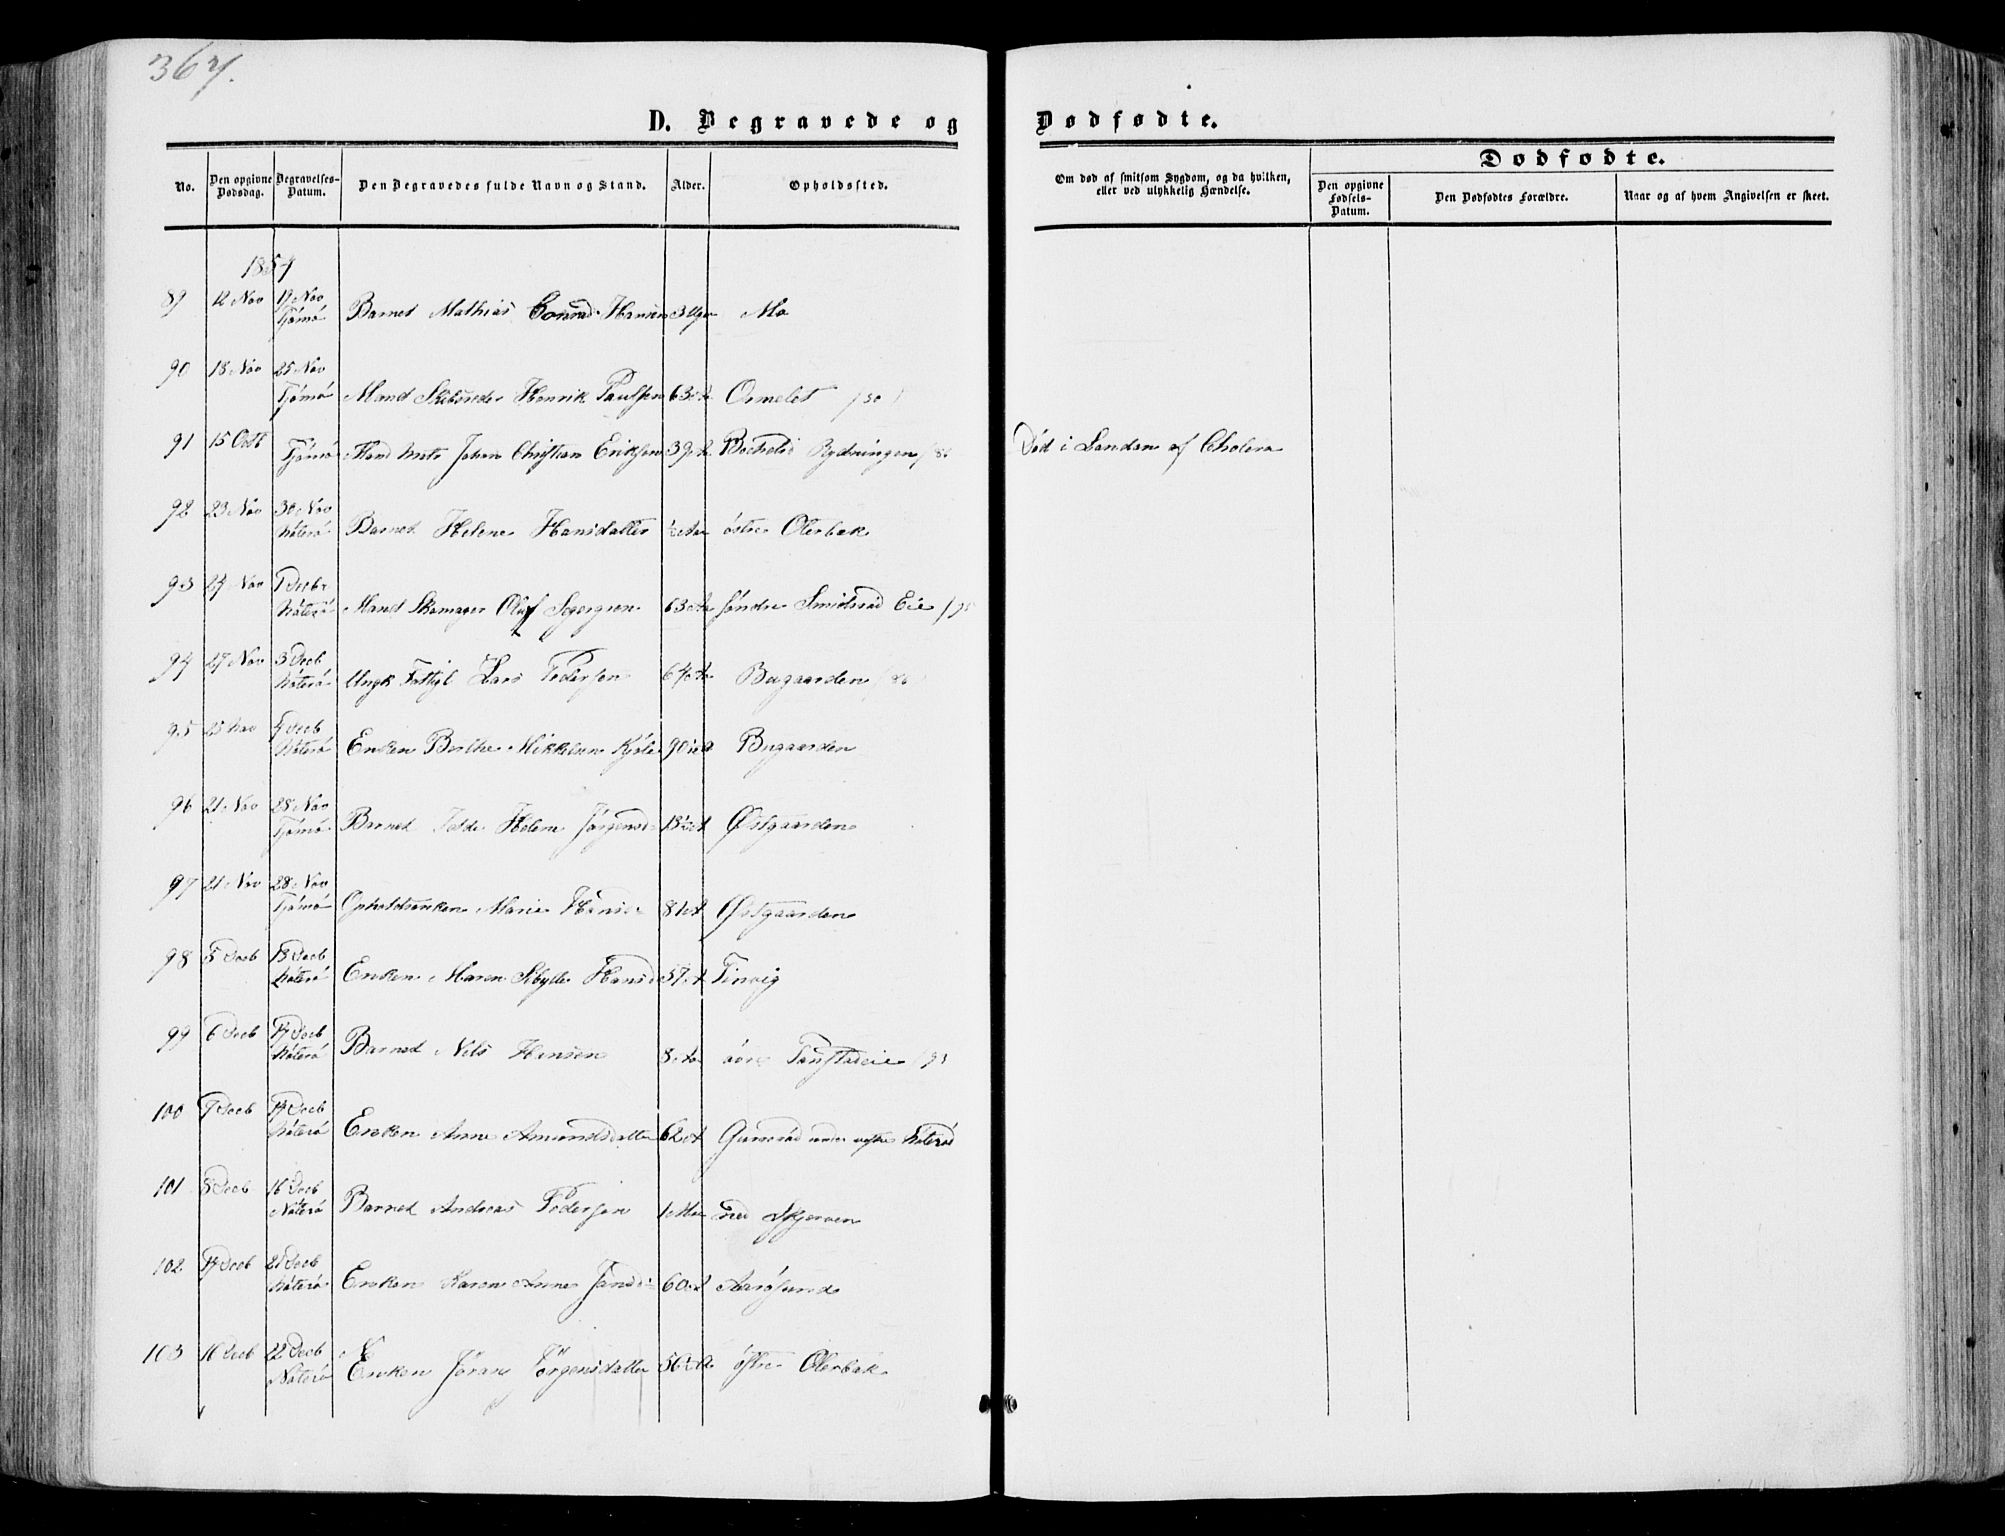 367.
D. Begravede og Dødfødte.
No. Den opgivne Dødsdag. Begravelses-Datum. Den Begravedes fulde Navn og Stand. Alder. Opholdssted. Om død af smitsom Sygdom, og da hvilken, eller ved ulykkelig Hændelse.
Dødfødte.
Den opgivne Fødsels-Datum. Den Dødfødtes Forældre. Naar og af hvem Angivelsen er skeet.
1854
89 12 Nov 19 Nov Tjømø Barnet Mathias Conrad Hansen 3 Uger Mo
90 18 Nov 25 Nov Tjømø Mand Henrik Paulsen 63 Ormelet
91 15 Octb Tjømø Johan Christian Eriksen 39 Rydningen Død i Landan af Cholera
92 23 Nov 30 Nov Nøterø Barnet Helene Hansdatter ½ Aar østre Olerbak
93 24 Nov 1 Decbr Nøterø Mand Skomager Oluf Segergren 63 Aa søndre Smidsrød Eie
94 27 Nov 3 Decb Nøterø Ungk Fattigl Lars Pedersen 64 Aa Bugaarden
95 25 Nov 4 Decb Nøterø Enken Berthe Mikkelsen 90 Bugaarden
96 21 Nov 28 Nov Tjømø Barnet Helene Jørgensd: 13 Østgaarden
97 21 Nov 28 Nov Tjømø Opholdsenken Marie Hansd: 81 A Østgaarden
98 5 Decb 13 Decb Nøterø Enken Maren Sibylle Hansd: 57 A Tinvig
99 6 Decb 14 Decb Nøterø Barnet Nils Hansen 8 Aa øvre
100 7 Decb 14 Decb Nøterø Enken Anne Amundsdatter 62 A under vestre Nøterød
101 8 Decb 16 Decb Nøterø Barnet Andreas Pedersen 1 ned Skjerven
102 14 Decb 21 Decb Nøterø Enken Karen Anne Jansd: 60 A Aarøsund
103 16 Decb 22 Decb Nøterø Enken Jøran Jørgensdatter 56 Aa østre Olerbak